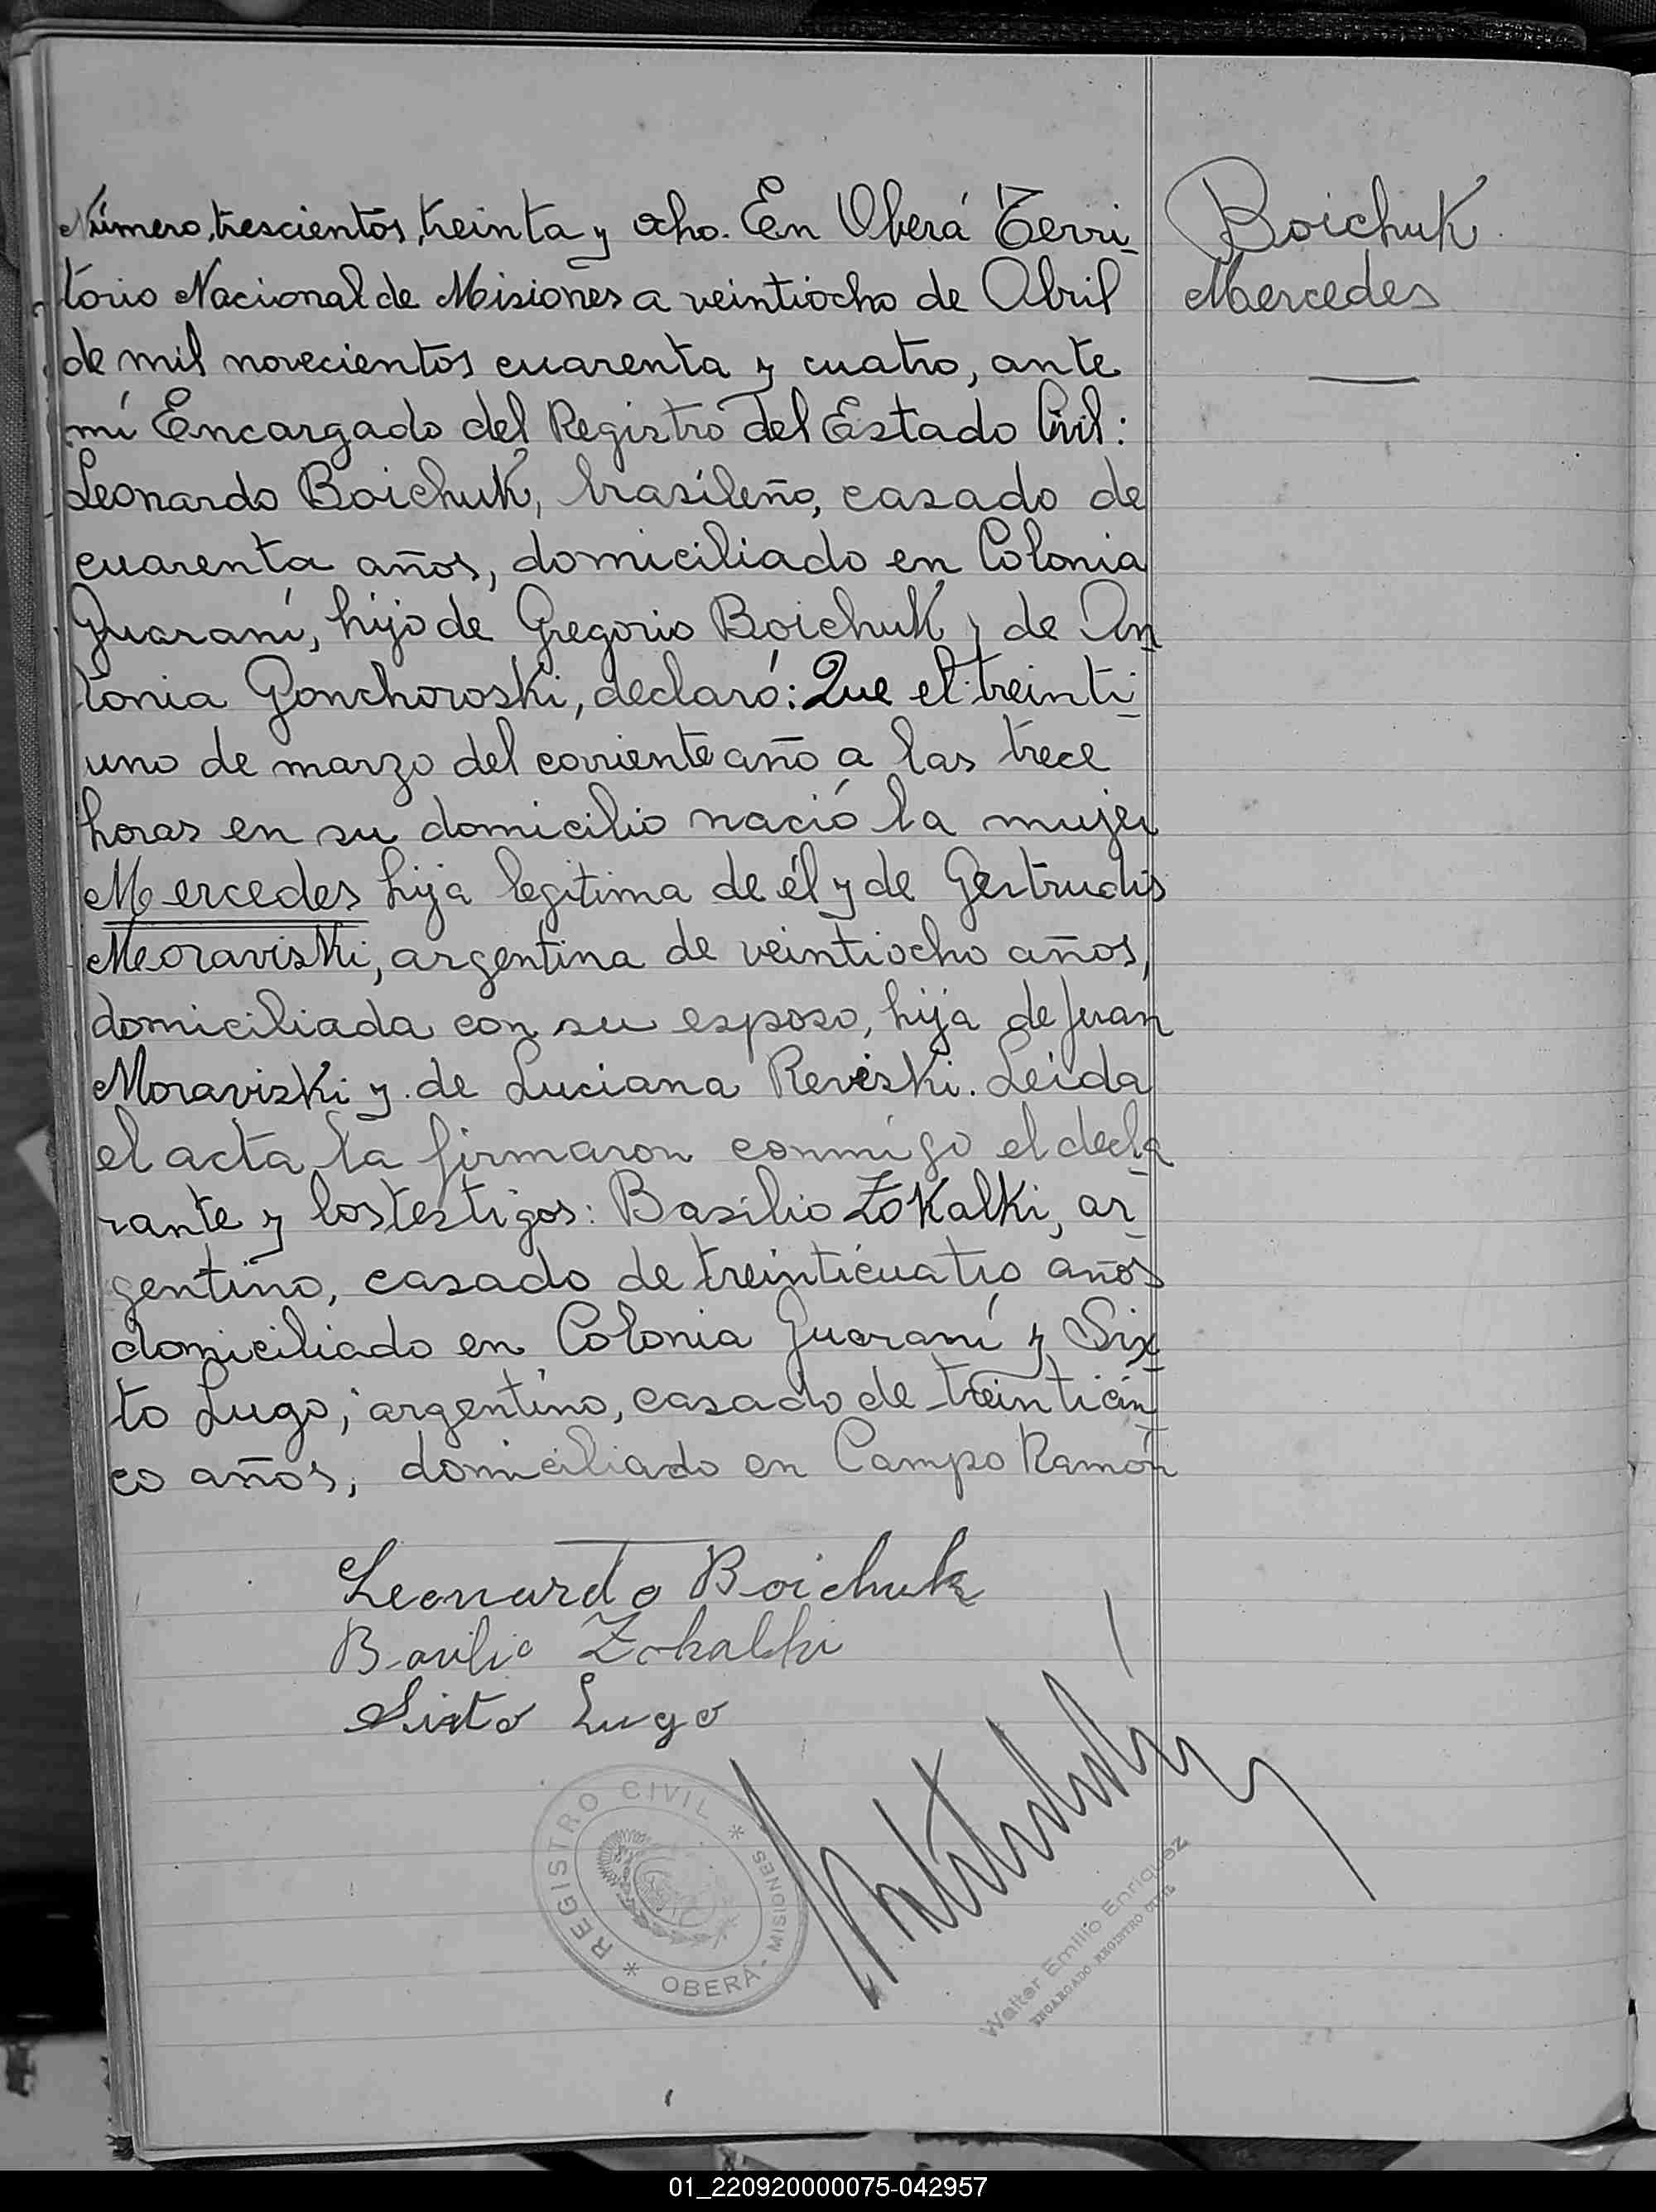 Número, trescientos, treinta y ocho. En Oberá Terri-
torio Nacional de Misiones a veintiocho de Abril
de mil novecientos cuarenta y cuatro, ante
mí Encargado del Registro del Estado Civil:
Leonardo Boichuk, brasileño, casado de
cuarenta años, domiciliado en Colonia
Guaraní, hijo de Gregorio Boichuk y de An
tonia Gonchoroski, declaró: Que el treinti-
uno de marzo del corriente año a las trece
horas en su domicilio nació la mujer
Mercedes hija legitima de él y de Gertrudis
Moraviski, argentina de veintiocho años,
domiciliada con su esposo, hija de Juan
Moraviski y de Luciana Reviski. Leída
el acta la firmaron conmigo el decla
rante y los testigos: Basilio Zokalki, ar-
gentino, casado de treinticuatro años
domiciliado en Colonia Guaraní y Six-
to Lugo, argentino, casado de treinticin-
co años, domiciliado en Campo Ramón
Boichuk
Mercedes
Leonardo Boichuk
Basilio Zokalki
Sixto Lugo
REGISTRO CIVIL * OBERÁ - MISIONES *
Walter Emilio Enriquez
ENCARGADO REGISTRO CIVIL
01_220920000075-042957